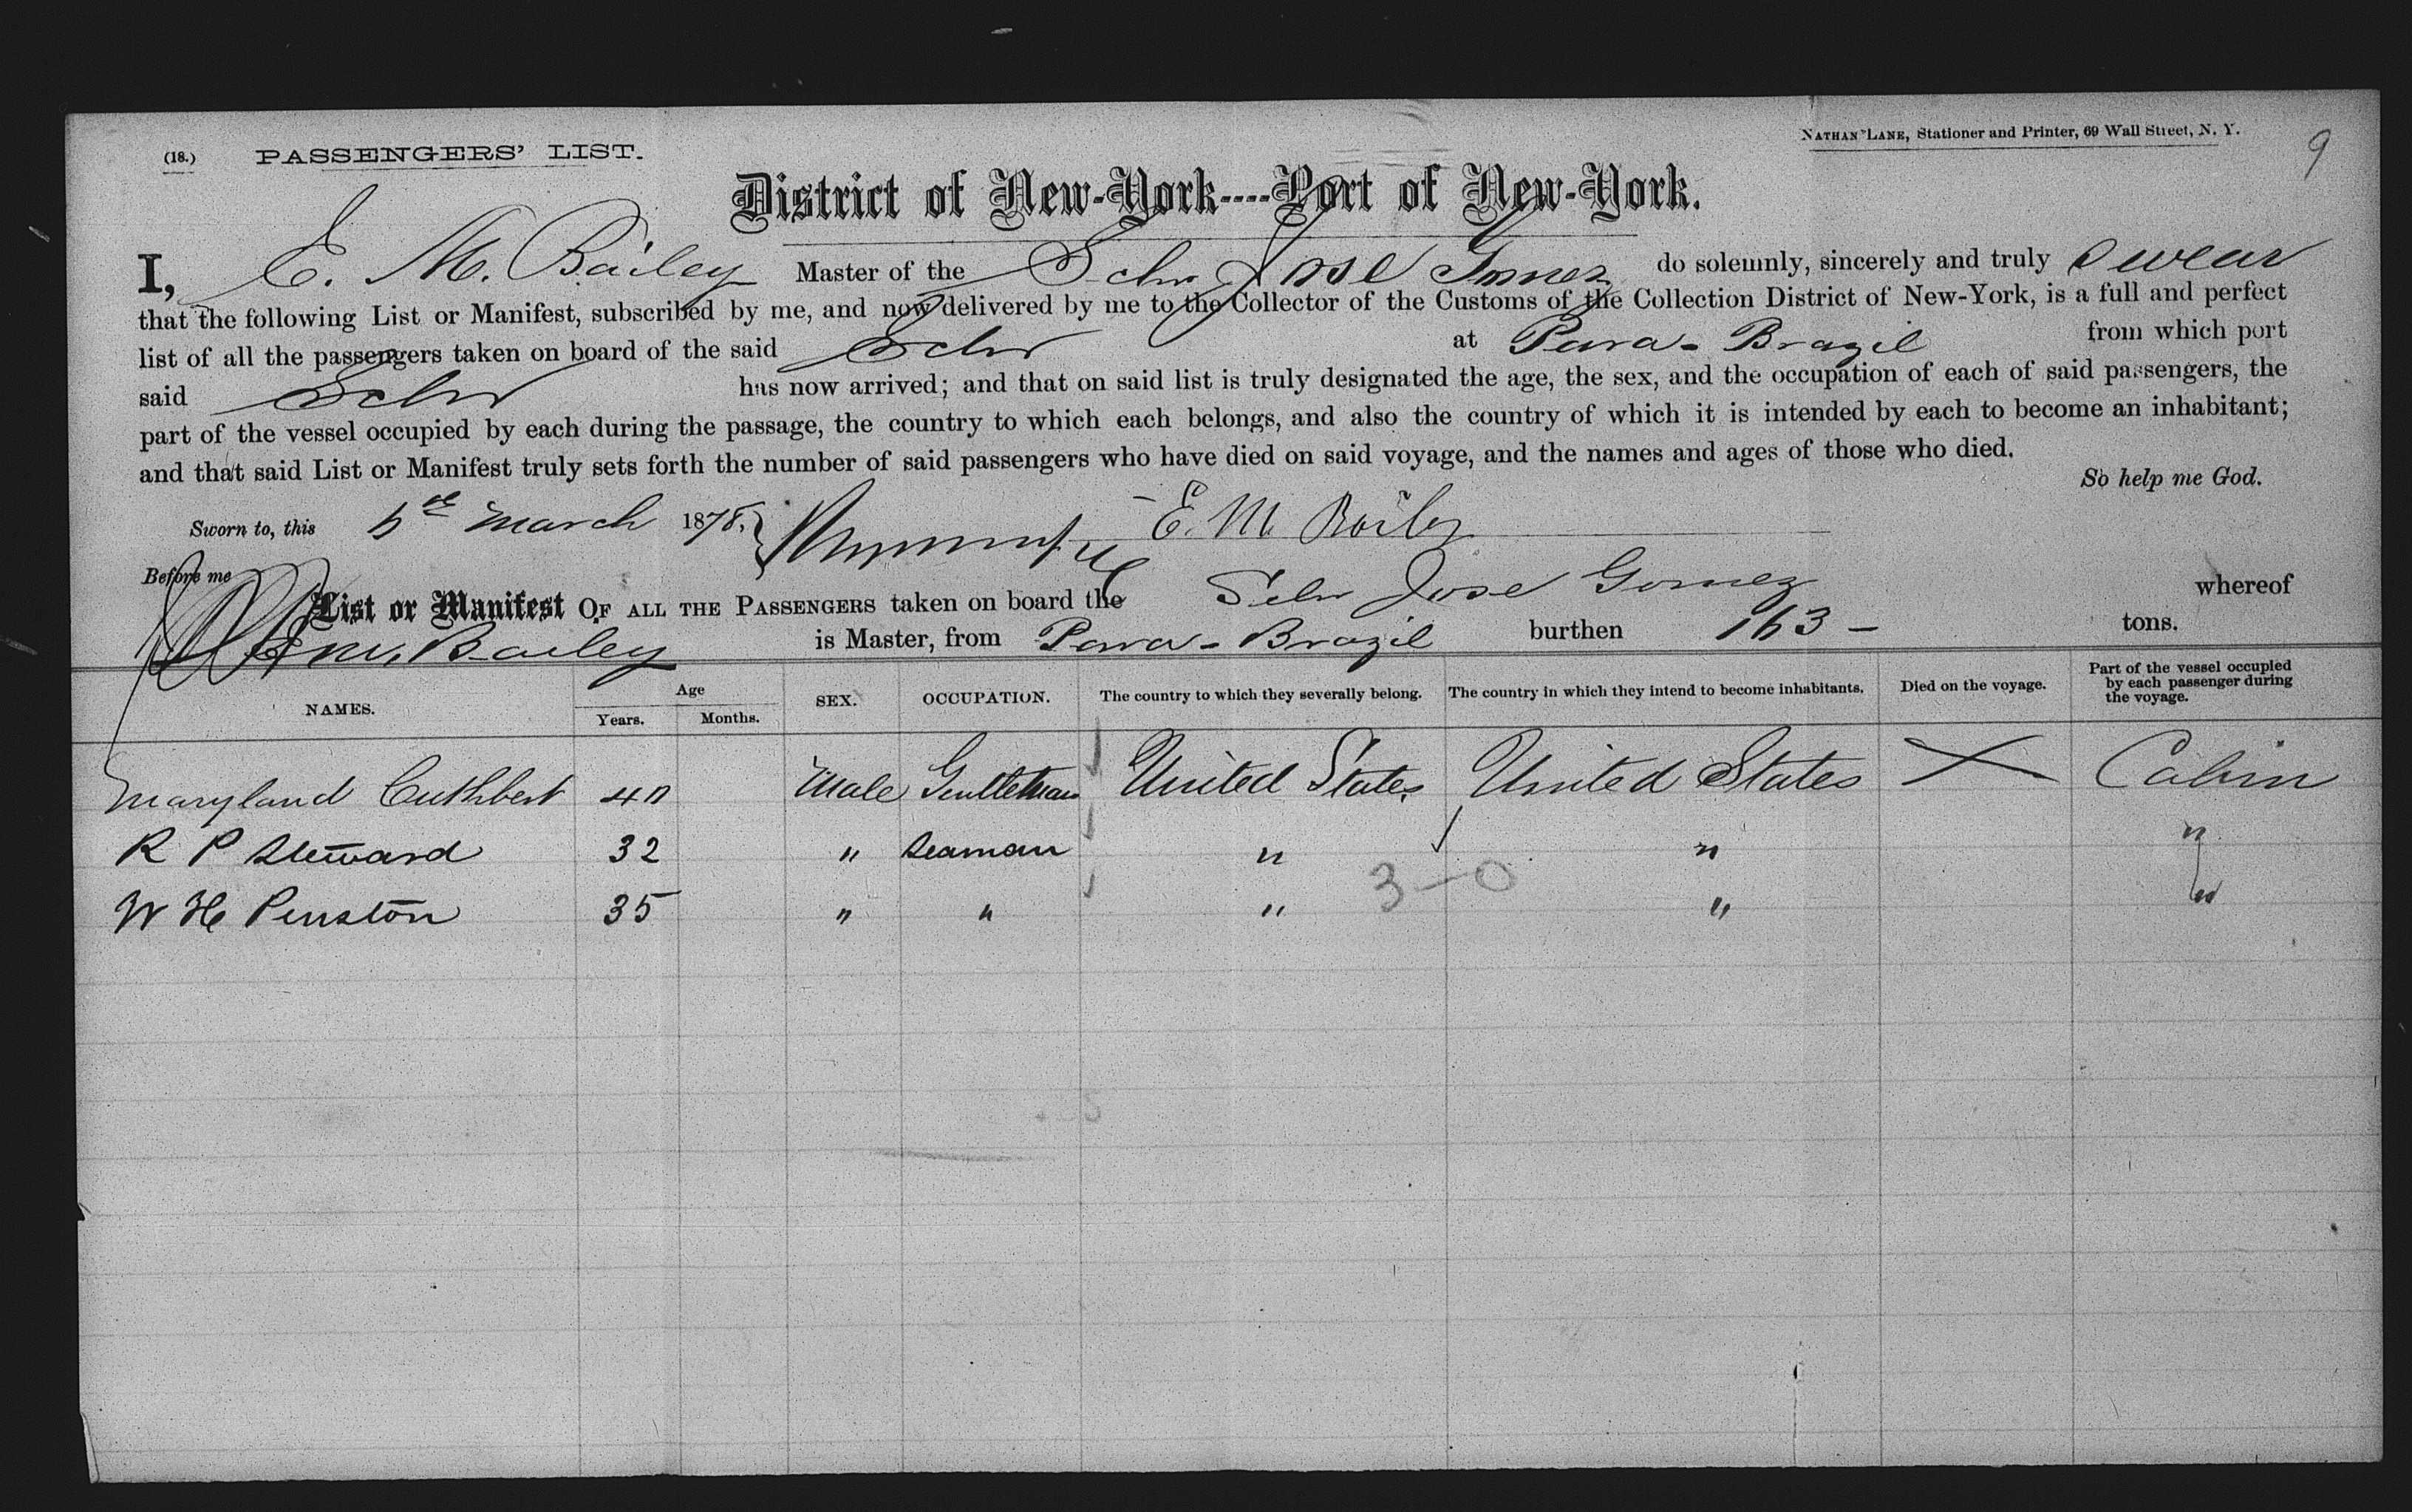 (18.) PASSENGERS' LIST.
NATHAN LANE, Stationer and Printer, 69 Wall Street, N. Y.
9
District of New-York----Port of New-York.
I, E. M. Bailey Master of the Schr Jose Gomez do solemnly, sincerely and truly swear
that the following List or Manifest, subscribed by me, and now delivered by me to the Collector of the Customs of the Collection District of New-York, is a full and perfect
list of all the passengers taken on board of the said Schr at Para - Brazil from which port
said Schr has now arrived; and that on said list is truly designated the age, the sex, and the occupation of each of said passengers, the
part of the vessel occupied by each during the passage, the country to which each belongs, and also the country of which it is intended by each to become an inhabitant;
and that said List or Manifest truly sets forth the number of said passengers who have died on said voyage, and the names and ages of those who died.
So help me God.
Sworn to, this 5th March 1878, E. M Bailey
Before me
List or Manifest OF ALL THE PASSENGERS taken on board the Schr Jose Gomez whereof
Bailey is Master, from Para - Brazil burthen 163 - tons.
NAMES. Age Years. Months. SEX. OCCUPATION. The country to which they severally belong. The country in which they intend to become inhabitants. Died on the voyage. Part of the vessel occupied by each passenger during the voyage.
Maryland Cuthbert 40 Male Gentleman United States United States Cabin
R P Steward 32 " Seaman " " "
3-0
W H Penston 35 " " " " "